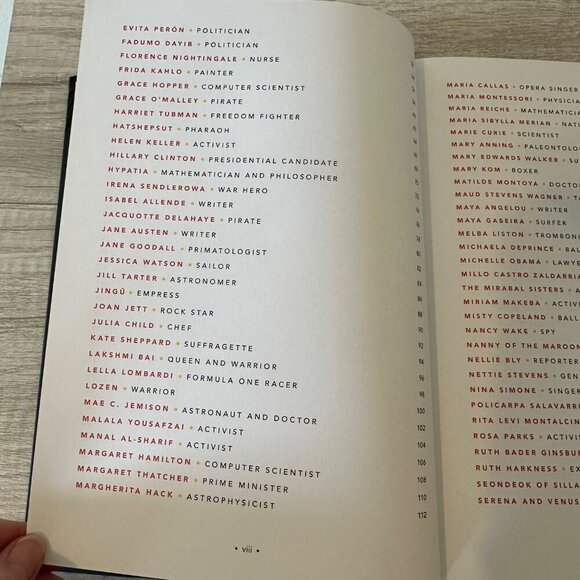 EVITA PERÓN • POLITICIAN
FADUMO DAYIB • POLITICIAN
FLORENCE NIGHTINGALE • NURSE
FRIDA KAHLO • PAINTER
GRACE HOPPER • COMPUTER SCIENTIST
GRACE O'MALLEY • PIRATE
HARRIET TUBMAN • FREEDOM FIGHTER
HATSHEPSUT • PHARAOH
HELEN KELLER • ACTIVIST
HILLARY CLINTON • PRESIDENTIAL CANDIDATE
HYPATIA • MATHEMATICIAN AND PHILOSOPHER
IRENA SENDLEROWA • WAR HERO
ISABEL ALLENDE • WRITER
JACQUOTTE DELAHAYE • PIRATE
JANE AUSTEN • WRITER
JANE GOODALL • PRIMATOLOGIST
JESSICA WATSON • SAILOR
JILL TARTER • ASTRONOMER
JINGŪ • EMPRESS
JOAN JETT • ROCK STAR
JULIA CHILD • CHEF
KATE SHEPPARD • SUFFRAGETTE
LAKSHMI BAI • QUEEN AND WARRIOR
LELLA LOMBARDI • FORMULA ONE RACER
LOZEN • WARRIOR
MAE C. JEMISON • ASTRONAUT AND DOCTOR
MALALA YOUSAFZAI • ACTIVIST
MANAL AL-SHARIF • ACTIVIST
MARGARET HAMILTON • COMPUTER SCIENTIST
MARGARET THATCHER • PRIME MINISTER
MARGHERITA HACK • ASTROPHYSICIST
70
72
74
76
78
80
82
84
86
88
90
92
94
96
98
100
102
104
106
108
110
112
• viii •
MARIA CALLAS • OPERA SINGER
MARIA MONTESSORI • PHYSICIA
MARIA REICHE • MATHEMATICIA
MARIA SIBYLLA MERIAN • NATU
MARIE CURIE • SCIENTIST
MARY ANNING • PALEONTOLO
MARY EDWARDS WALKER • SU
MARY KOM • BOXER
MATILDE MONTOYA • DOCTO
MAUD STEVENS WAGNER • TA
MAYA ANGELOU • WRITER
MAYA GABEIRA • SURFER
MELBA LISTON • TROMBON
MICHAELA DEPRINCE • BALL
MICHELLE OBAMA • LAWYE
MILLO CASTRO ZALDARRI
THE MIRABAL SISTERS • A
MIRIAM MAKEBA • ACTIV
MISTY COPELAND • BALL
NANCY WAKE • SPY
NANNY OF THE MAROON
NELLIE BLY • REPORTER
NETTIE STEVENS • GEN
NINA SIMONE • SINGER
POLICARPA SALAVARR
RITA LEVI MONTALCIN
ROSA PARKS • ACTIVI
RUTH BADER GINSBU
RUTH HARKNESS • EX
SEONDEOK OF SILLA
SERENA AND VENUS